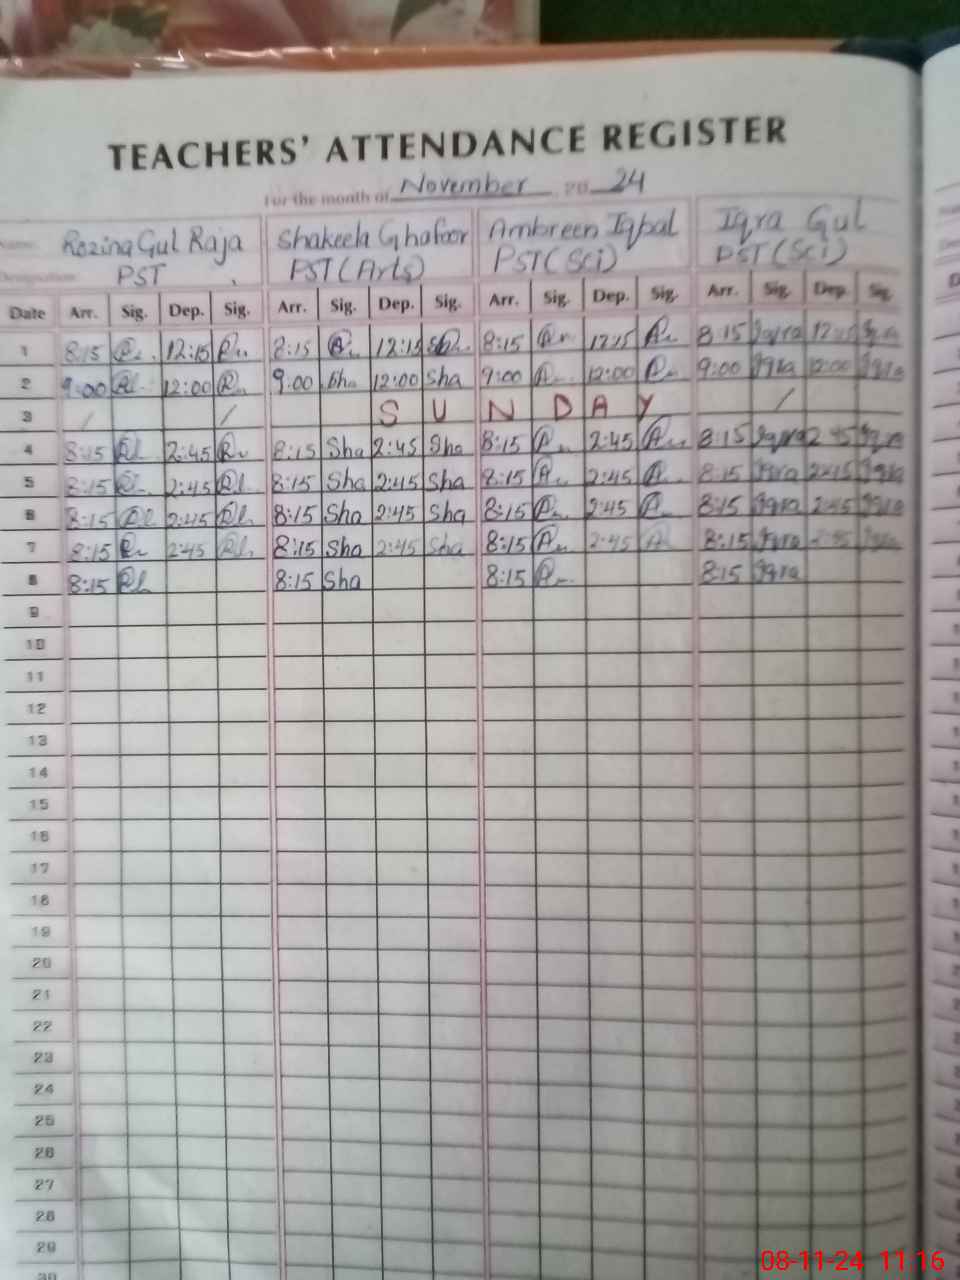 TEACHERS' ATTENDANCE REGISTER
For the month of November 2024
Name Rozina Gul Raja Shakeela Ghafoor Ambreen Iqbal Iqra Gul
Designation PST PST (Arts) PST (Sci) PST (Sci)
Date Arr. Sig. Dep. Sig. Arr. Sig. Dep. Sig. Arr. Sig. Dep. Sig. Arr. Sig. Dep. Sig.
1 8:15 12:15 8:15 12:15 8:15 12:15 8:15 Iqra 12:15 Iqra
2 9:00 12:00 9:00 Sha 12:00 Sha 9:00 12:00 9:00 Iqra 12:00 Iqra
3 / / SUNDAY /
4 8:15 2:45 8:15 Sha 2:45 Sha 8:15 2:45 8:15 Iqra 2:45 Iqra
5 8:15 2:45 8:15 Sha 2:45 Sha 8:15 2:45 8:15 Iqra 2:45 Iqra
6 8:15 2:45 8:15 Sha 2:45 Sha 8:15 2:45 8:15 Iqra 2:45 Iqra
7 8:15 2:45 8:15 Sha 2:45 Sha 8:15 2:45 8:15 Iqra 2:45 Iqra
8 8:15 8:15 Sha 8:15 8:15 Iqra
9
10
11
12
13
14
15
16
17
18
19
20
21
22
23
24
25
26
27
28
29
30
08-11-24 11:16